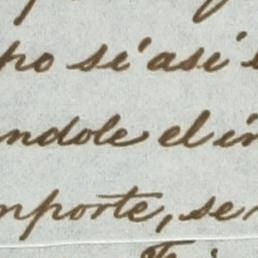 po si así
ndole el im
mporte, se